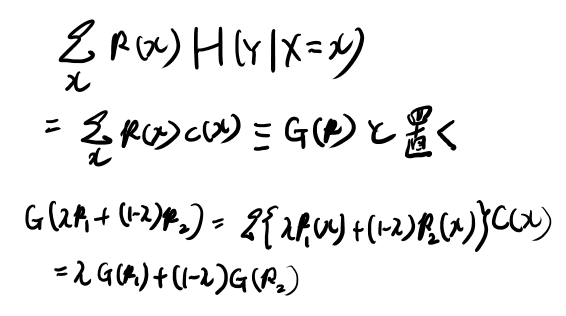 ∑_x P(x) H(Y|X=x)
= ∑_x P(x) c(x) ≡ G(P) と置く
G(λP₁ + (1-λ)P₂) = ∑{λP₁(x) + (1-λ)P₂(x)}C(x)
= λG(P₁) + (1-λ)G(P₂)